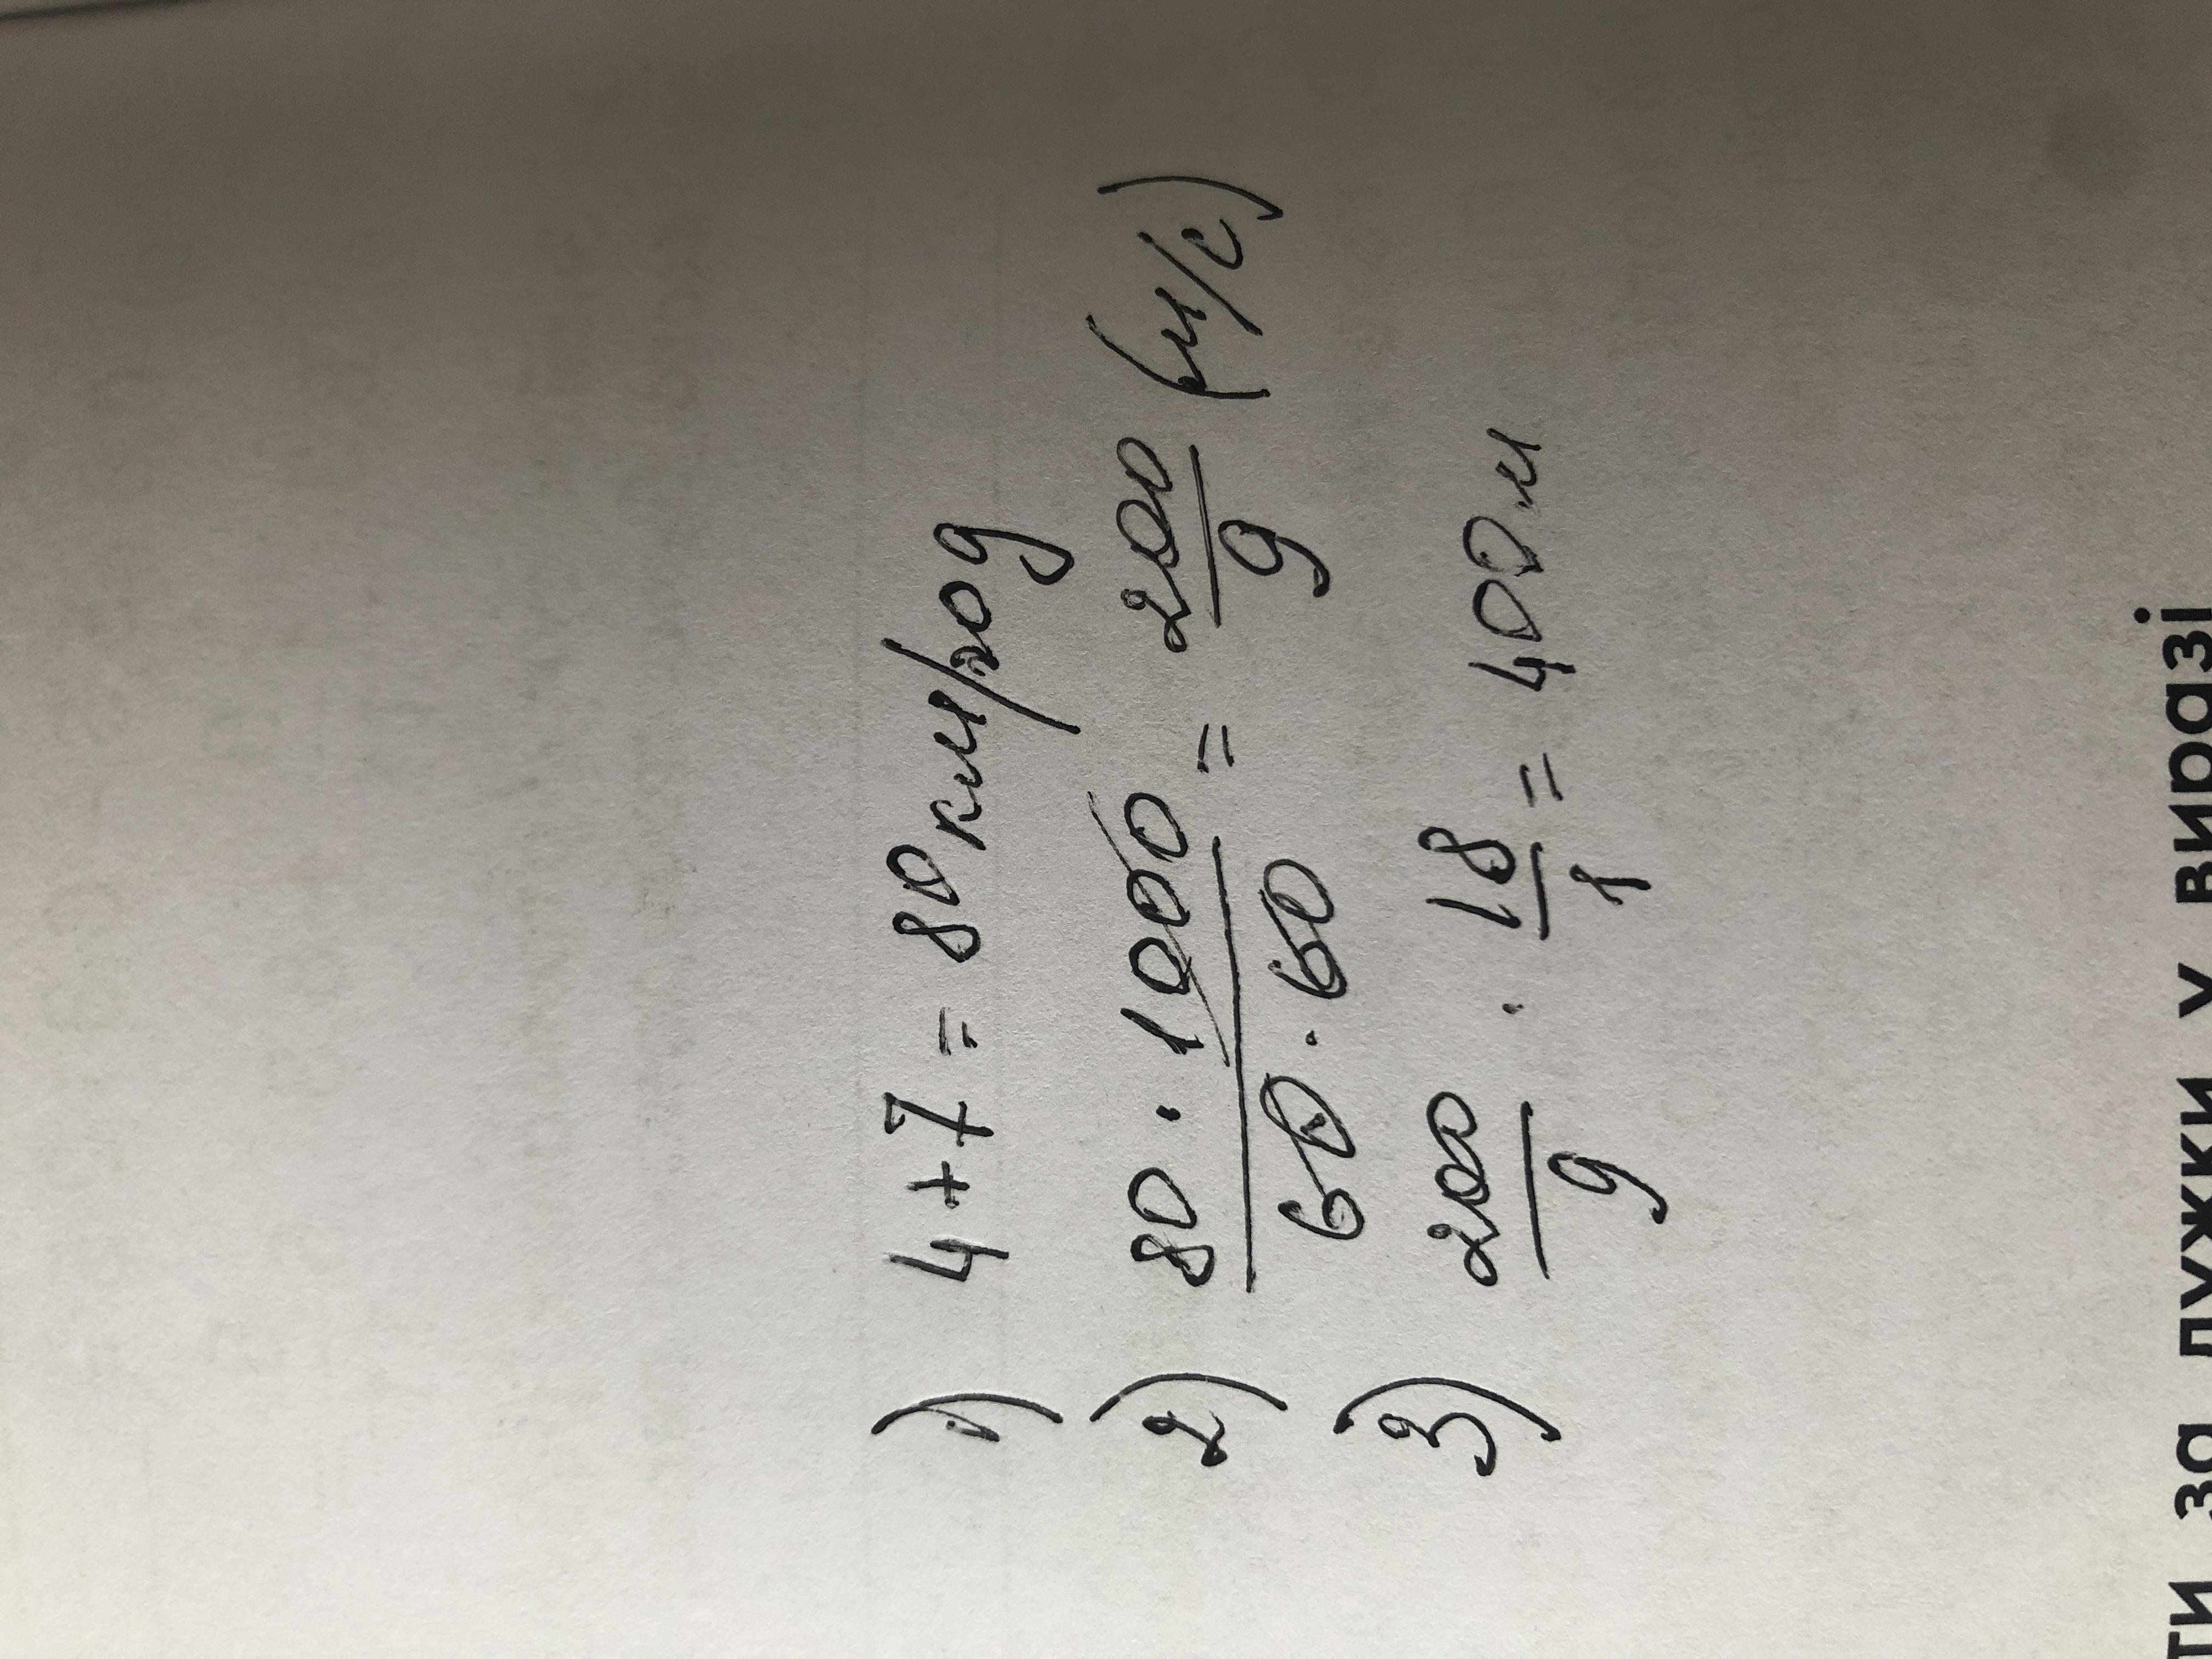 1) 4+7 = 80 км/год
2) 80 · 1000 / 60 · 60 = 200/9 (м/с)
3) 200/9 · 18/1 = 400 м
ти за дужки у виразі